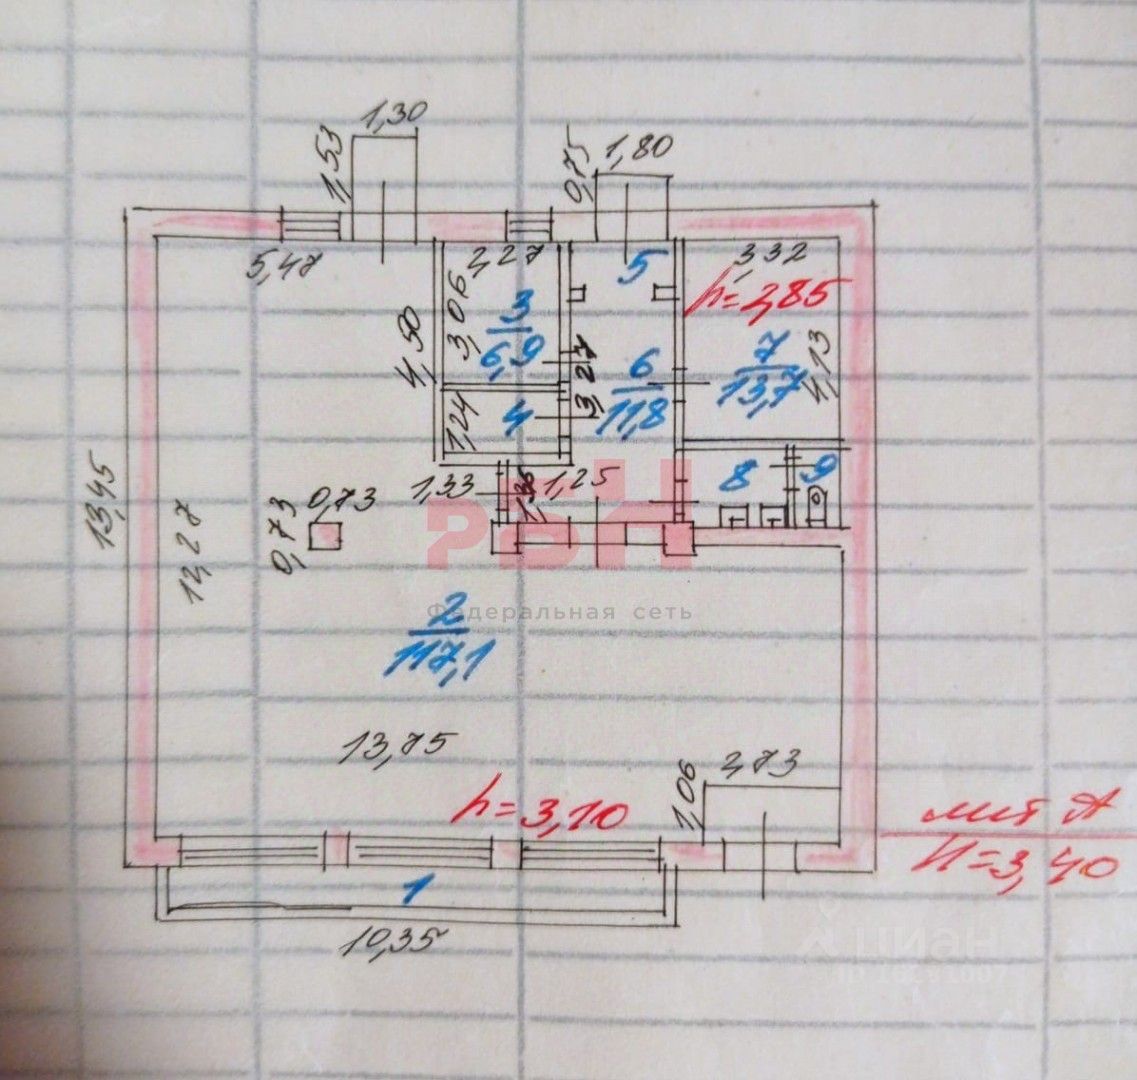 1,30
1,53
0,75
1,80
5,47
2,27
5
3,32
h=2,85
3,06
3
6,9
4,50
3,27
6
11,8
7
13,7
4,13
1,24
4
13,45
1,33
1,36
1,25
8
9
0,73
0,73
12,27
РБН
Федеральная сеть
2
117,1
13,75
h=3,10
1,06
2,73
лит А
H=3,40
1
10,35
циан